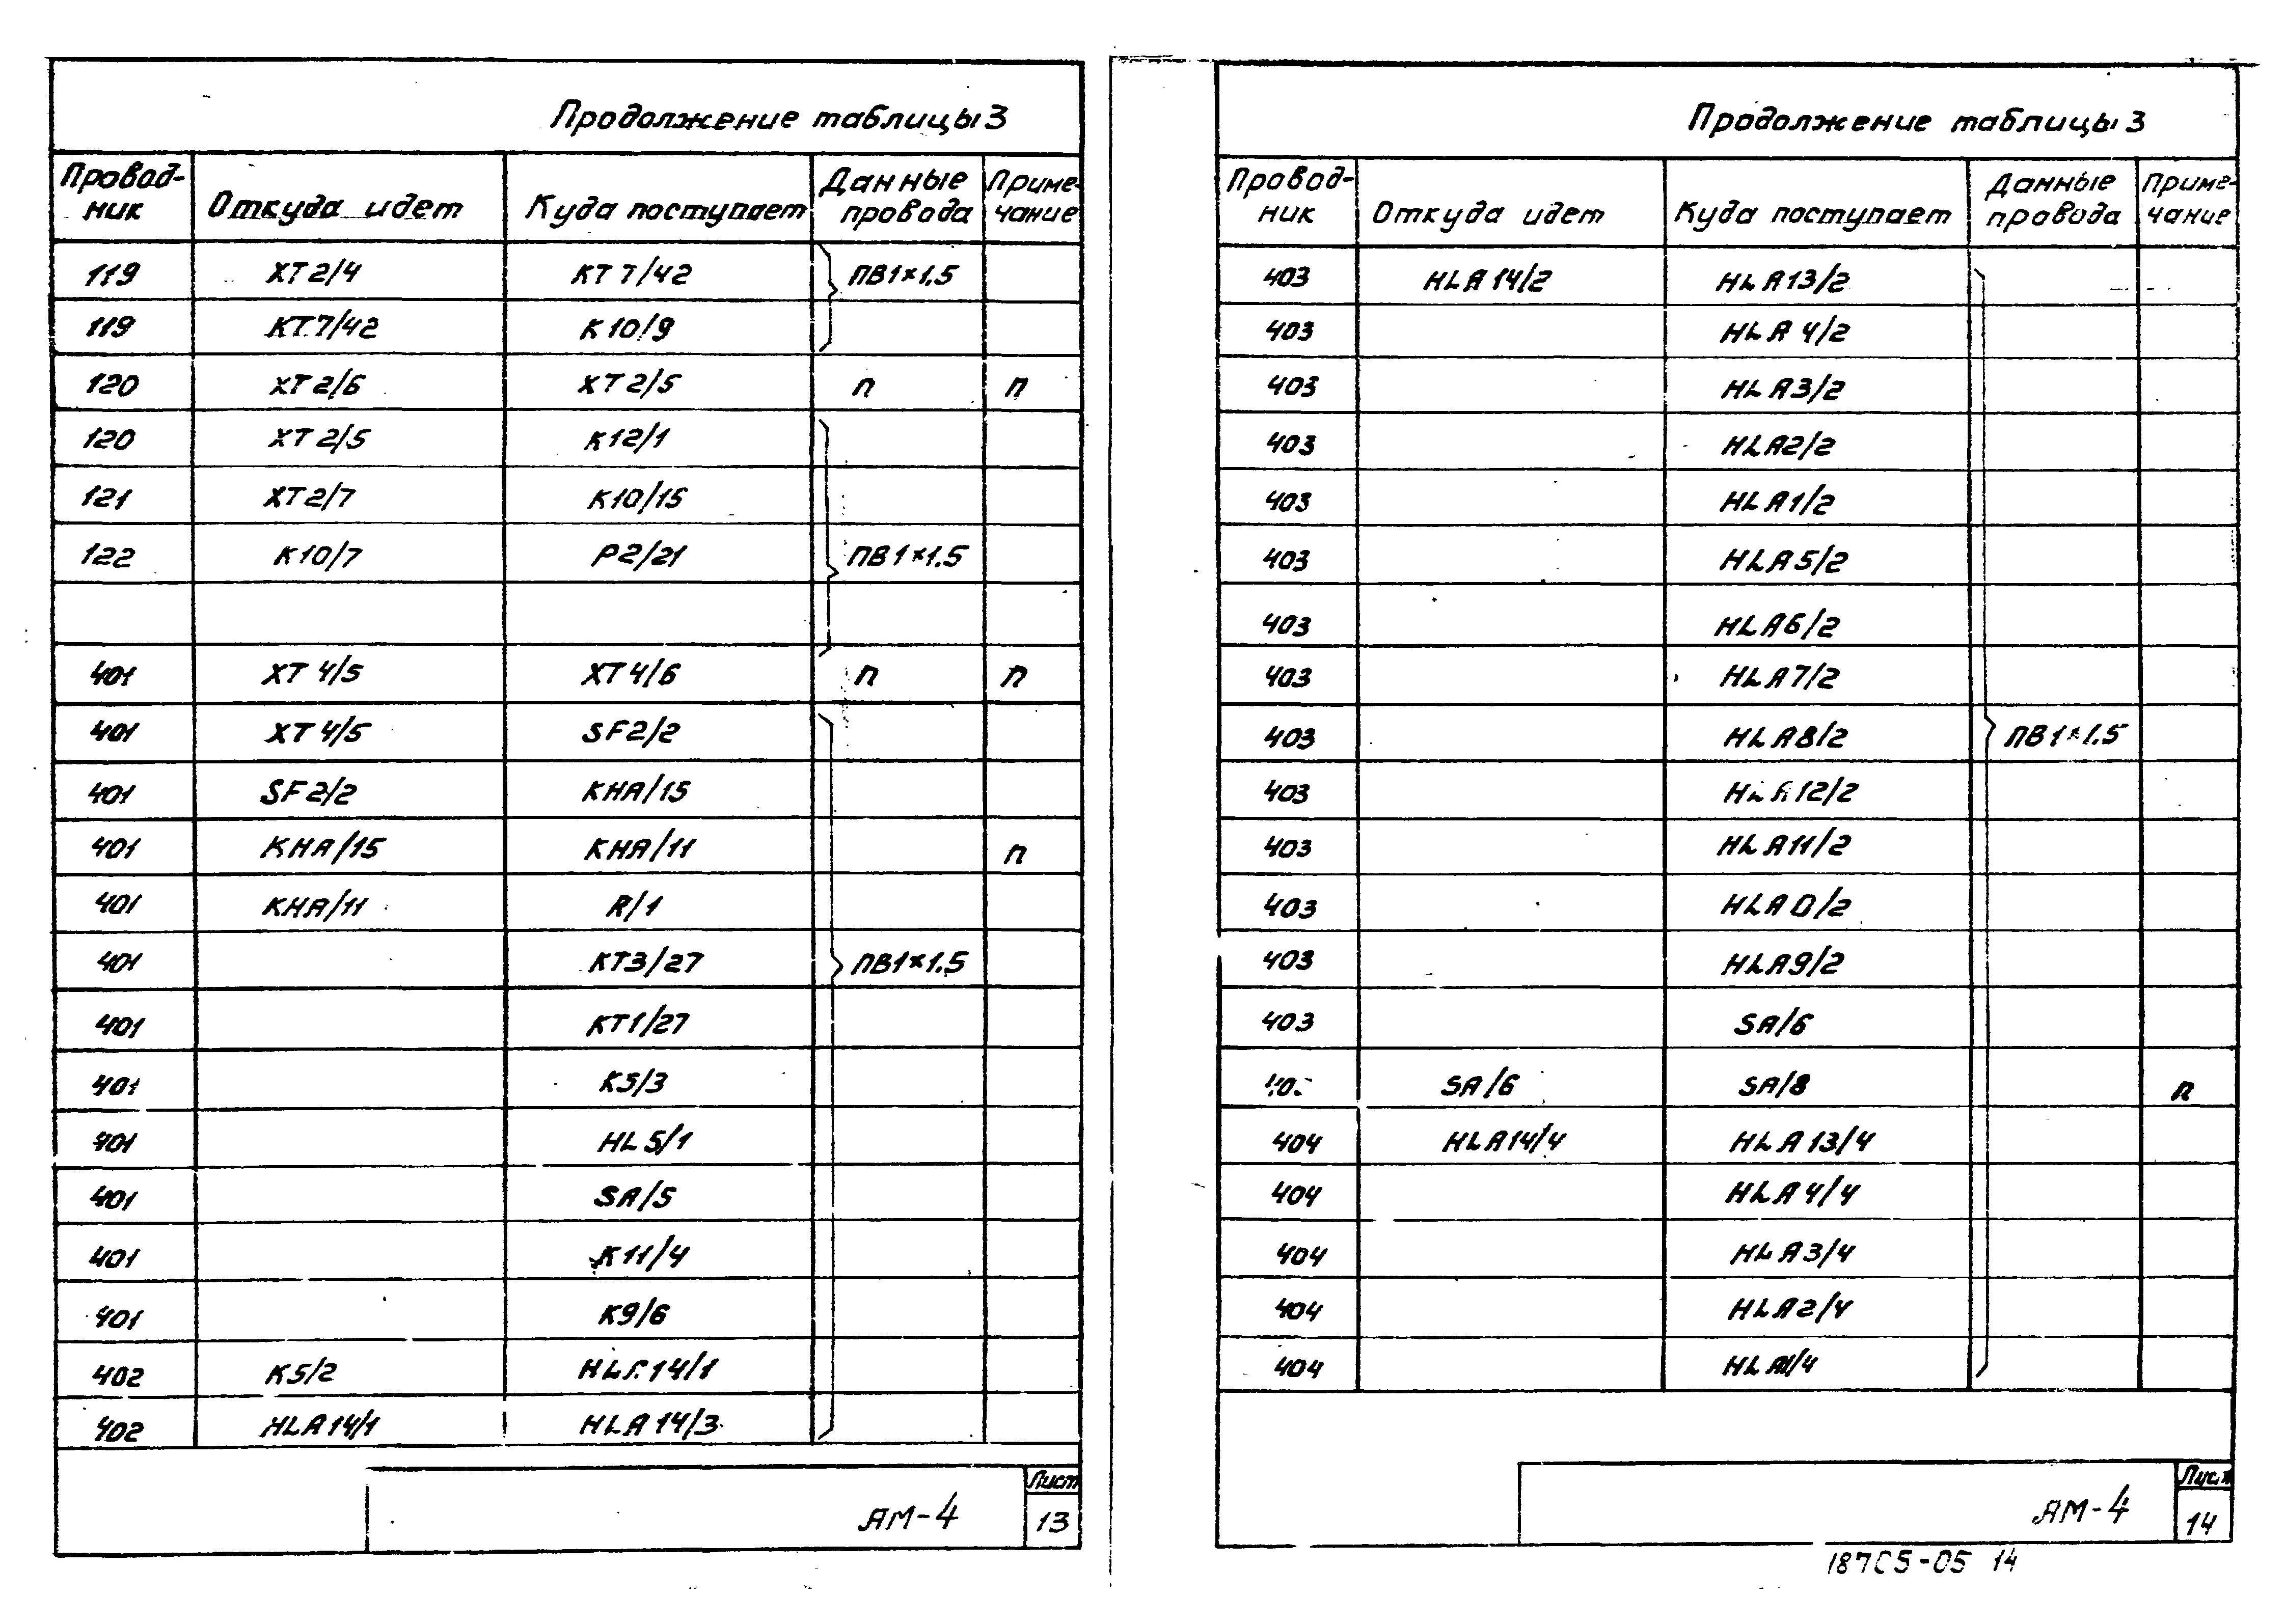 Продолжение таблицы 3
Провод- Откуда идет Куда поступает Данные Приме-
ник провода чание
119 ХТ2/4 КТ7/42 ПВ1×1,5
119 КТ7/42 К10/9
120 ХТ2/6 ХТ2/5 п п
120 ХТ2/5 К12/1
121 ХТ2/7 К10/15
122 К10/7 Р2/21 ПВ1×1,5
401 ХТ4/5 ХТ4/6 п п
401 ХТ4/5 SF2/2
401 SF2/2 КНА/15
401 КНА/15 КНА/11 п
401 КНА/11 R/1
401 КТ3/27 ПВ1×1,5
401 КТ1/27
401 К5/3
401 HL5/1
401 SA/5
401 К11/4
401 К9/6
402 К5/2 HLA14/1
402 HLA14/1 HLA14/3
АМ-4
Лист
13
Продолжение таблицы 3
Провод- Откуда идет Куда поступает Данные Приме-
ник провода чание
403 HLA14/2 HLA13/2
403 HLA4/2
403 HLA3/2
403 HLA2/2
403 HLA1/2
403 HLA5/2
403 HLA6/2
403 HLA7/2
403 HLA8/2 ПВ1×1,5
403 HLA12/2
403 HLA11/2
403 HLA0/2
403 HLA9/2
403 SA/6
SA/6 SA/8 п
404 HLA14/4 HLA13/4
404 HLA4/4
404 HLA3/4
404 HLA2/4
404 HLA1/4
АМ-4
Лист
14
18705-05 14